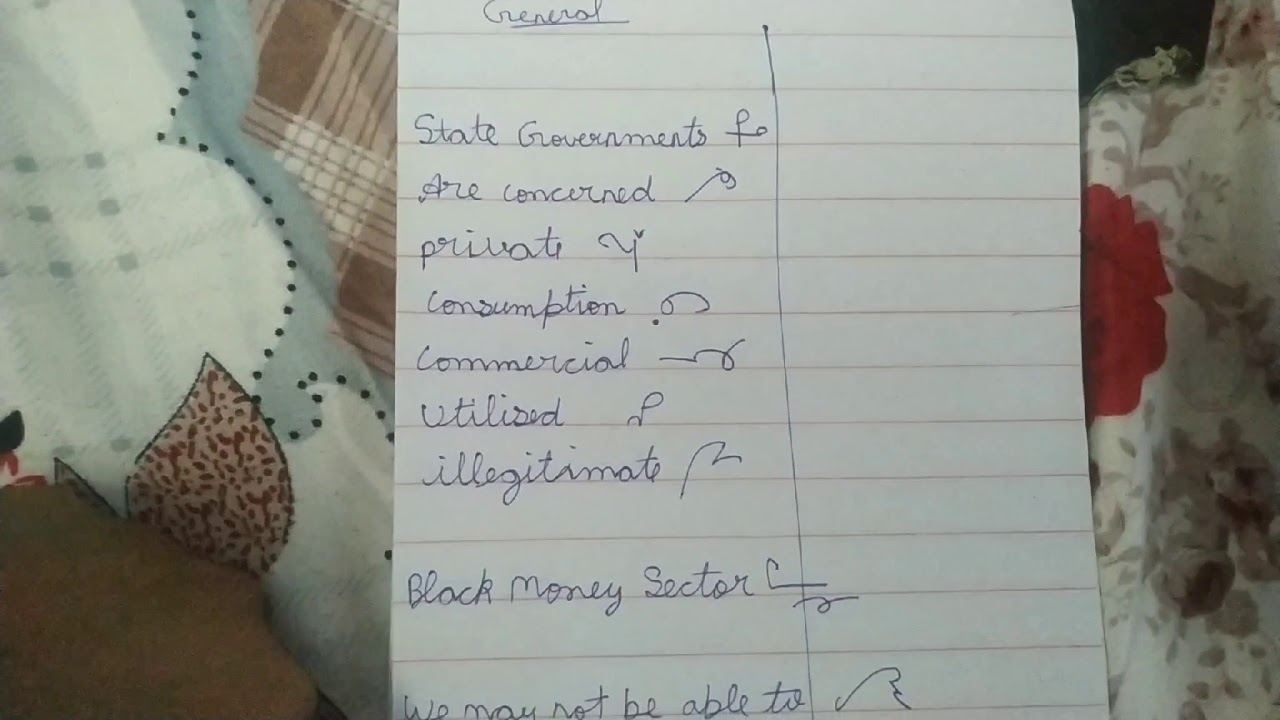 General
State Governments
Are concerned
private
consumption
commercial
utilised
illegitimate
Black Money Sector
We may not be able to